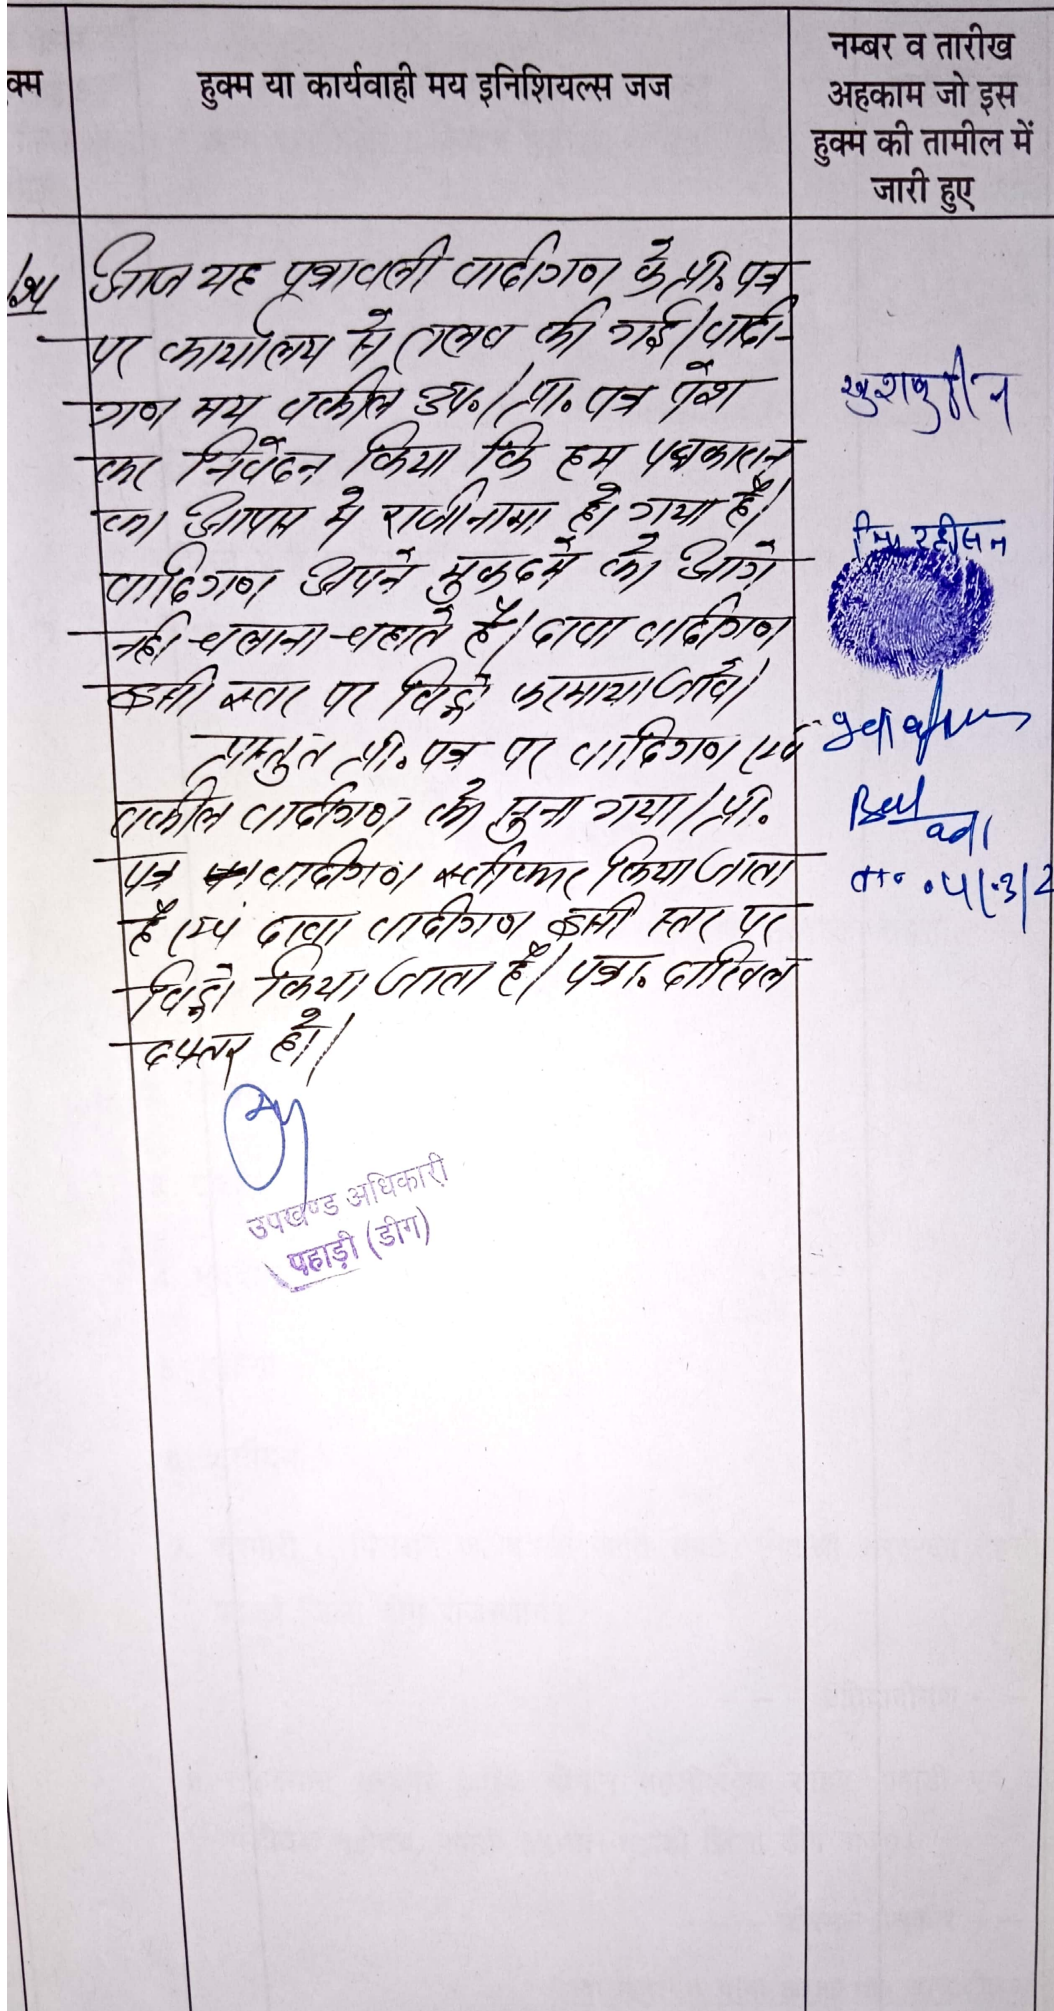 क्म
हुक्म या कार्यवाही मय इनिशियल्स जज
नम्बर व तारीख
अहकाम जो इस
हुक्म की तामील में
जारी हुए
आज यह पत्रावली वादीगण के प्रा. पत्र
पर कार्यालय से तलब की गई। वादी-
गण मय वकील उप.। प्रा. पत्र पेश
कर निवेदन किया कि हम पक्षकारान
का आपस मे राजीनामा हो गया है।
वादिगण अपने मुकदमे को आगे
नही चलाना चहाते है। दावा वादीगण
इसी स्तर पर विड्रो फरमाया जावे।
प्रस्तुत प्रा. पत्र पर वादिगण एवं
वकील वादीगण को सुना गया। प्रा.
पत्र वादीगण स्वीकार किया जाता
है एवं दावा वादीगण इसी स्तर पर
विड्रो किया जाता है। पत्रा. दाखिल
दफ्तर हो।
उपखण्ड अधिकारी
पहाड़ी (डीग)
खुशबुदीन
नि. रहीसन